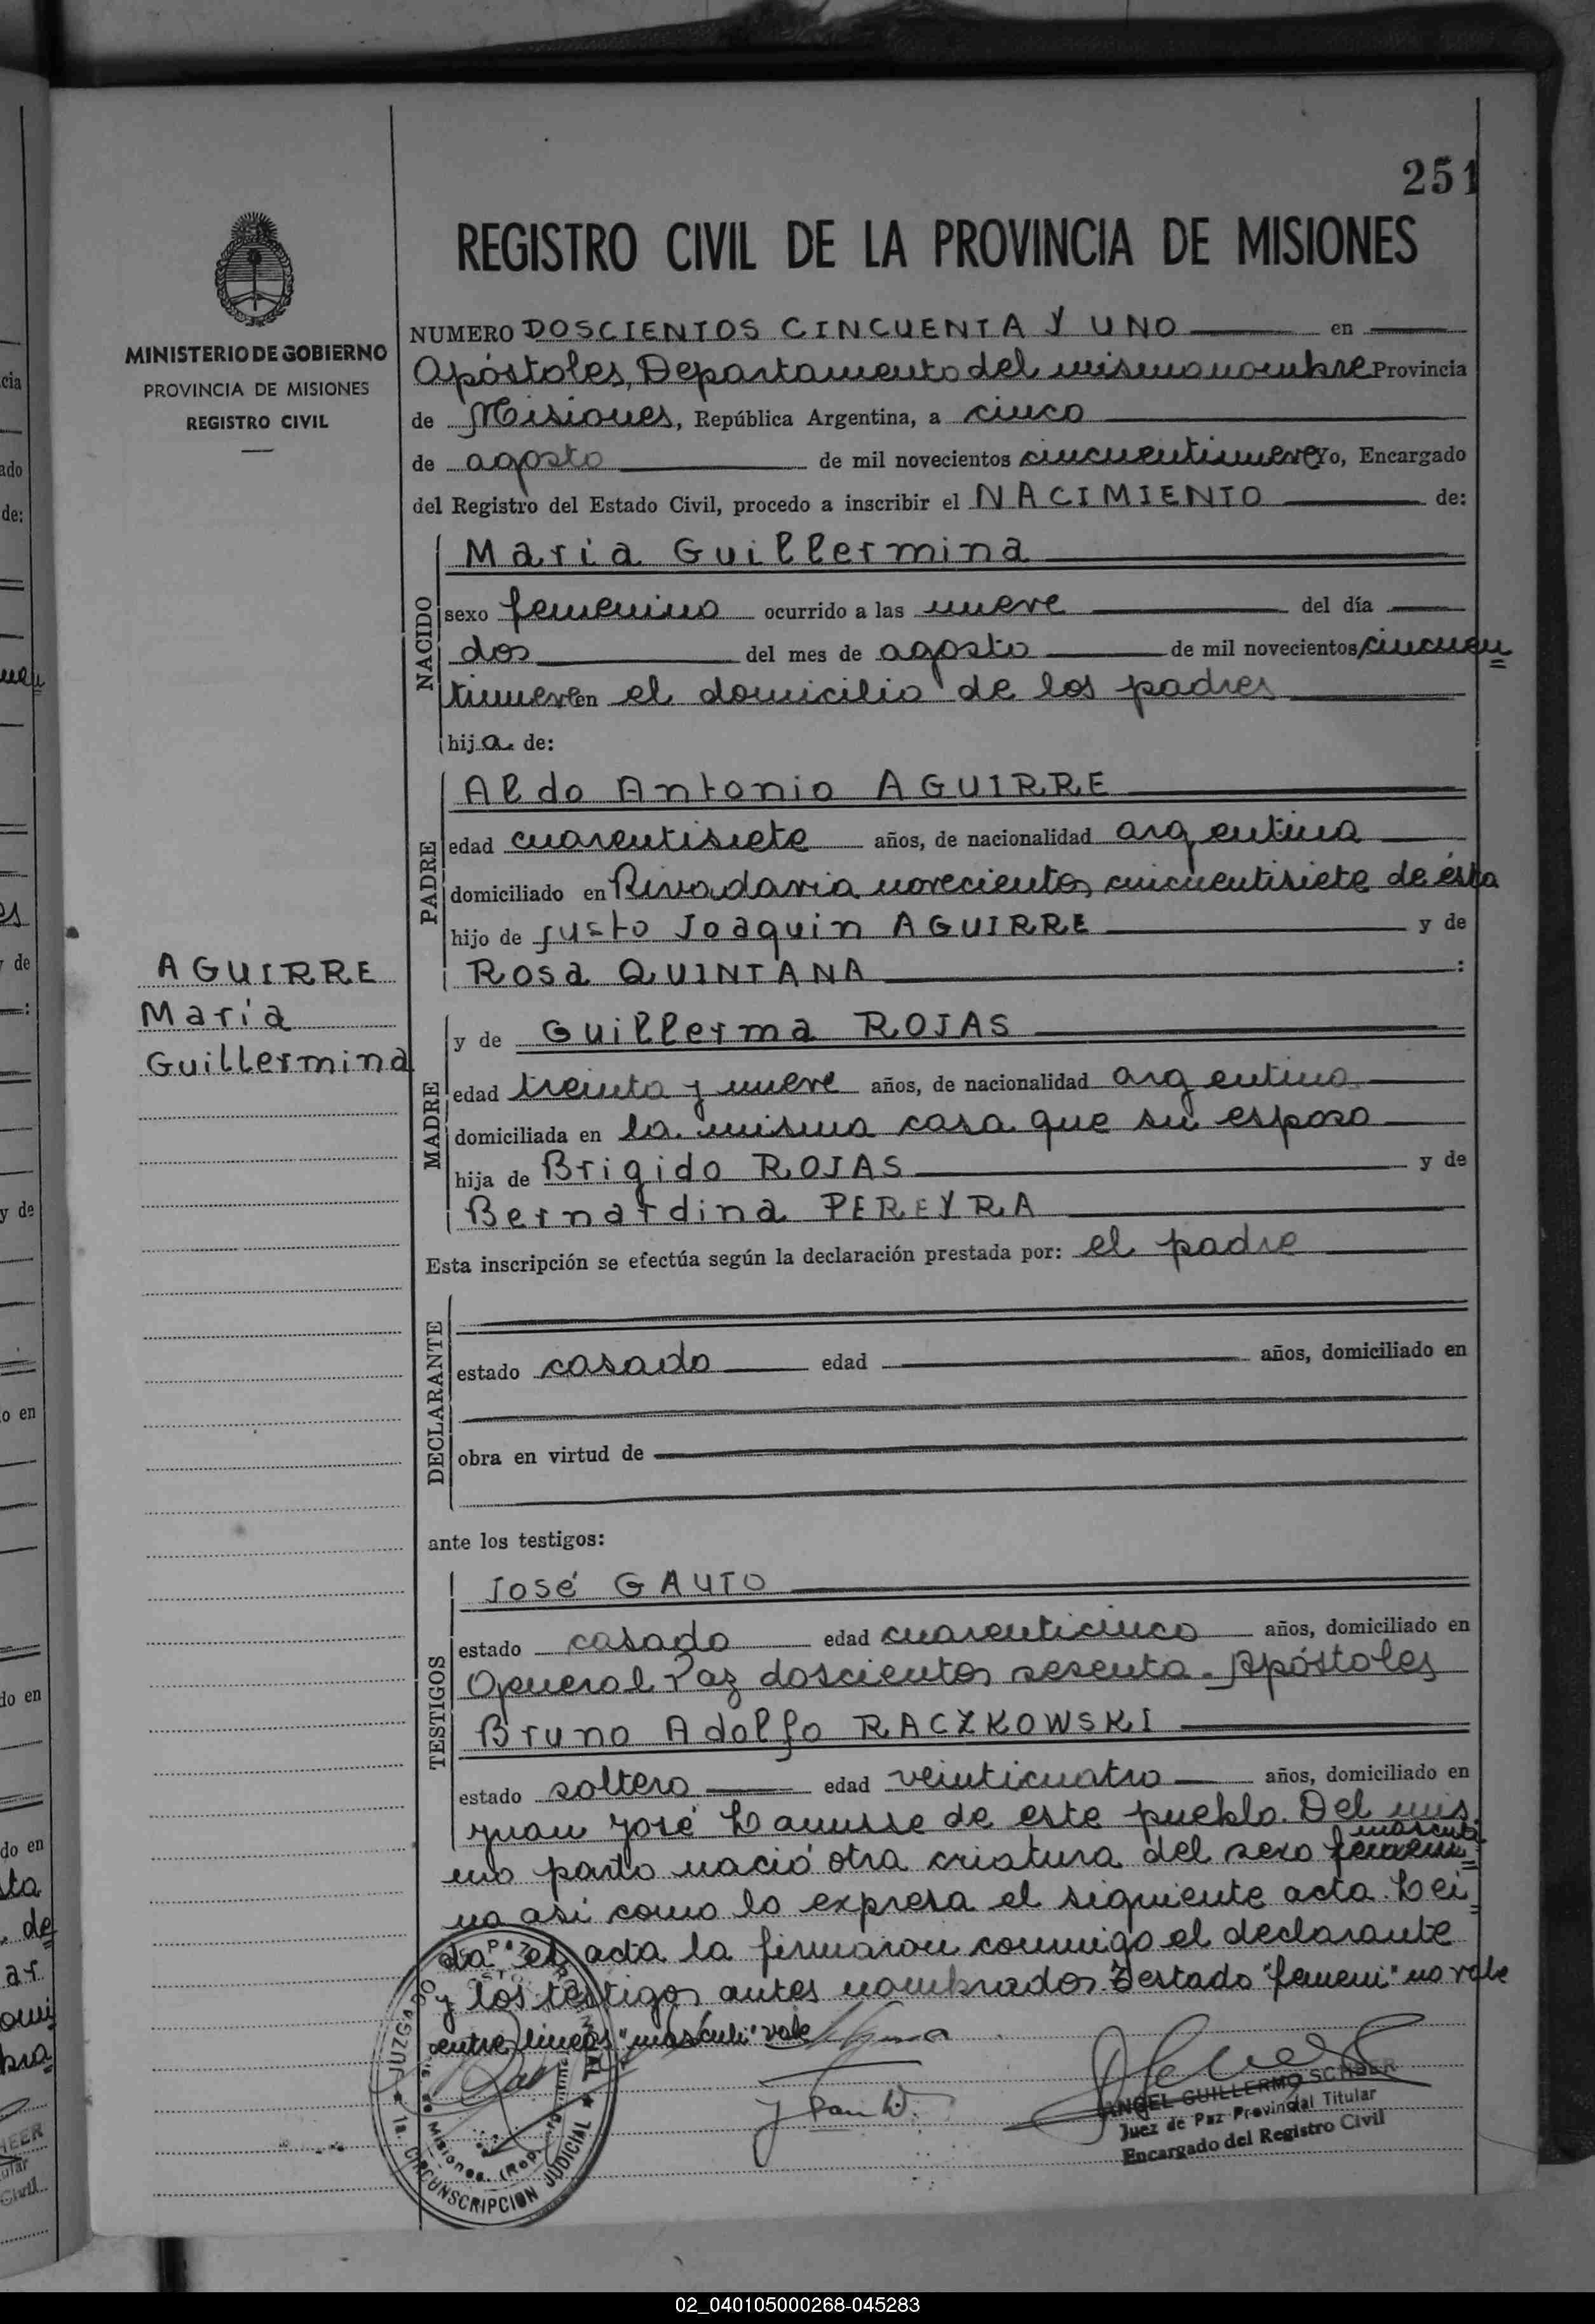 251
REGISTRO CIVIL DE LA PROVINCIA DE MISIONES
MINISTERIO DE GOBIERNO
PROVINCIA DE MISIONES
REGISTRO CIVIL
NUMERO DOSCIENTOS CINCUENTA Y UNO en
Apóstoles, Departamento del mismo nombre Provincia
de Misiones, República Argentina, a cinco
de agosto de mil novecientos cincuentinueve Yo, Encargado
del Registro del Estado Civil, procedo a inscribir el NACIMIENTO de:
NACIDO
María Guillermina
sexo femenino ocurrido a las nueve del día
dos del mes de agosto de mil novecientos cincuen
tinueve en el domicilio de los padres
hija de:
PADRE
Aldo Antonio AGUIRRE
edad cuarentisiete años, de nacionalidad argentina
domiciliado en Rivadavia novecientos cincuentisiete de ésta
hijo de Justo Joaquin AGUIRRE y de
Rosa QUINTANA :
AGUIRRE
María
Guillermina
MADRE
y de Guillerma ROJAS
edad treinta y nueve años, de nacionalidad argentina
domiciliada en la misma casa que su esposo
hija de Brigido ROJAS y de
Bernardina PEREYRA
Esta inscripción se efectúa según la declaración prestada por: el padre
DECLARANTE
estado casado edad años, domiciliado en
obra en virtud de
ante los testigos:
TESTIGOS
José GAUTO
estado casado edad cuarenticinco años, domiciliado en
General Paz doscientos sesenta. Apóstoles
Bruno Adolfo RACZKOWSKI
estado soltero edad veinticuatro años, domiciliado en
Juan José Lanusse de este pueblo. Del mis
masculi
mo parto nació otra criatura del sexo femeni
no así como lo expresa el siguiente acta. Lei
da el acta la firmaron conmigo el declarante
y los testigos antes nombrados. Testado "femeni" no vale
entre líneas "masculi" vale
JUZGADO DE PAZ
1a. CIRCUNSCRIPCION JUDICIAL
Misiones (Rep.
ANGEL GUILLERMO SCHEER
Juez de Paz Provincial Titular
Encargado del Registro Civil
02_040105000268-045283